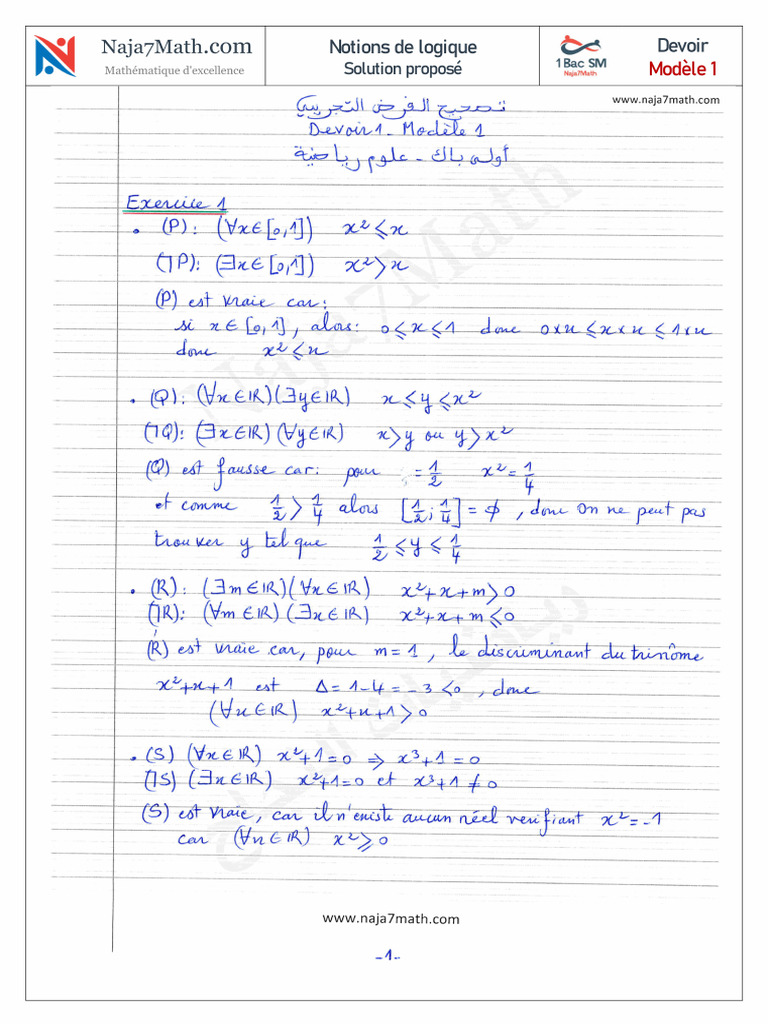 Naja7Math.com
Mathématique d'excellence
Notions de logique
Solution proposé
1 Bac SM
Naja7Math
Devoir
Modèle 1
www.naja7math.com
تصحيح الفرض التجريبي
Devoir 1 - Modèle 1
أولى باك - علوم رياضية
Exercice 1
• (P): (∀x∈[0,1]) x² ⩽ x
(⌉P): (∃x∈[0,1]) x² > x
(P) est vraie car:
si x∈[0,1], alors: 0⩽x⩽1 donc 0×x ⩽ x×x ⩽ 1×x
donc x² ⩽ x
• (Q): (∀x∈ℝ)(∃y∈ℝ) x ⩽ y ⩽ x²
(⌉Q): (∃x∈ℝ)(∀y∈ℝ) x>y ou y>x²
(Q) est fausse car: pour = 1/2 x² = 1/4
et comme 1/2 > 1/4 alors [1/2 ; 1/4] = ∅, donc on ne peut pas
trouver y tel que 1/2 ⩽ y ⩽ 1/4
• (R): (∃m∈ℝ)(∀x∈ℝ) x²+x+m>0
(⌉R): (∀m∈ℝ)(∃x∈ℝ) x²+x+m⩽0
(R) est vraie car, pour m=1, le discriminant du trinôme
x²+x+1 est Δ=1-4=-3<0, donc
(∀x∈ℝ) x²+x+1>0
• (S) (∀x∈ℝ) x²+1=0 ⇒ x³+1=0
(⌉S) (∃x∈ℝ) x²+1=0 et x³+1≠0
(S) est vraie, car il n'existe aucun réel verifiant x²=-1
car (∀x∈ℝ) x²⩾0
www.naja7math.com
-1-